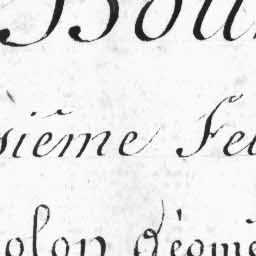 Bou
sième Feu
olon géomè